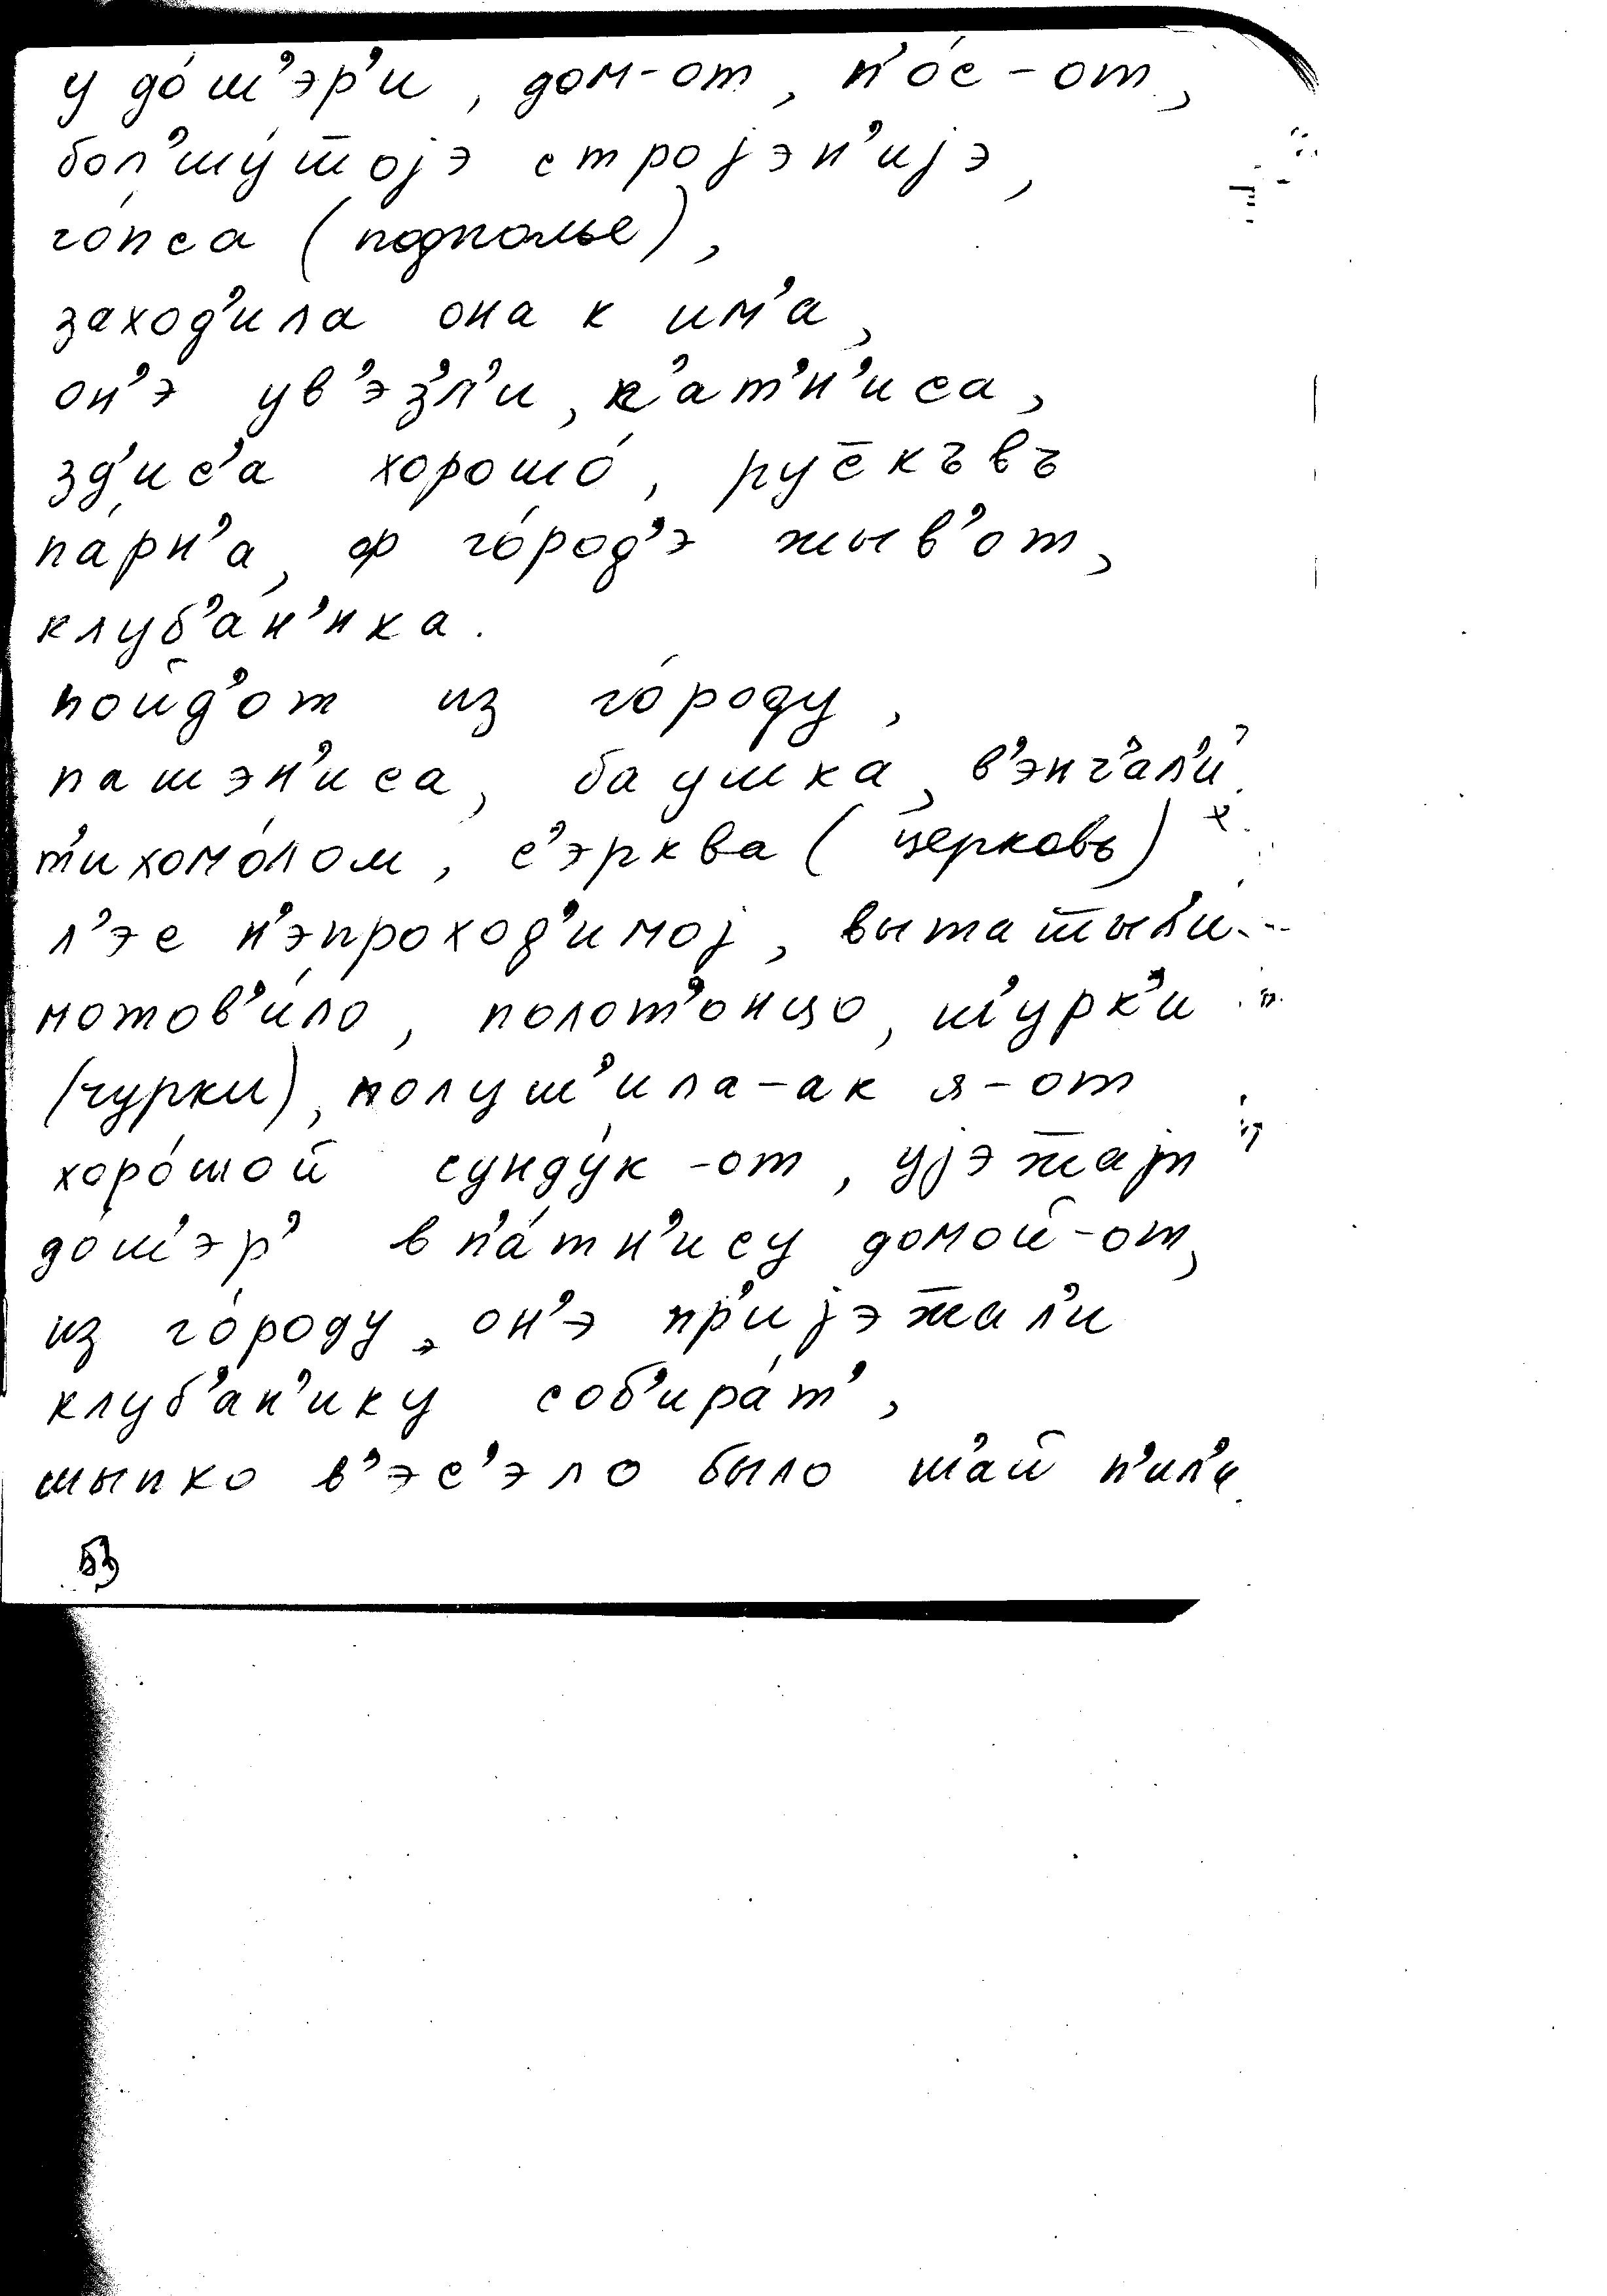 у до́ш'эр'и, дом-от, п'о́с-от,
бол'шу́ш̄ојэ стројэн'ијэ,
го́пса (подполье),
заход'ила она к им'а,
он'э ув'эз'л'и, к'ат'н'иса,
зд'ис'а хорошо́, рус̄къвъ
па́рн'а, ф го́род'э жыв'от,
клуб'а́н'ика.
пойд'от из го́роду,
пашэн'иса, баушка, в'энч'ал'и
т'ихомо́лом, с'эрква (церковь)
л'эс н'эпроход'имој,
мотов'и́ло, полот'онцо, ш'урк'и
(чурки), полуш'ила-ак я-от
хоро́шой сунду́к-от, ујэж̄ајт
до́ш'эр' в п'а́тн'ису домой-от,
из го́роду, он'э пр'ијэж̄ал'и
клуб'ан'ику соб'ира́т',
шыпко в'эс'эло было ш'ай п'ил'и.
53